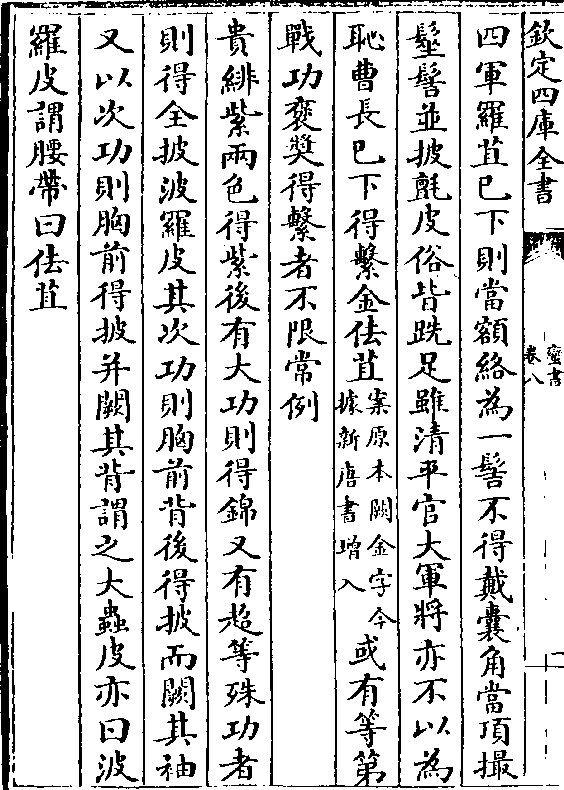 欽定四庫全書
蠻書
卷八
四軍羅苴已下則當額絡為一髻不得戴囊角當頂撮
髽髻並披氈皮俗皆跣足雖清平官大軍將亦不以為
恥曹長已下得繫金佉苴案原本闕金字今據新唐書增入或有等第
戰功褒奬得繫者不限常例
貴緋紫兩色得紫後有大功則得錦又有超等殊功者
則得全披波羅皮其次功則胸前背後得披而闕其袖
又以次功則胸前得披并闕其背謂之大蟲皮亦曰波
羅皮謂腰帶曰佉苴